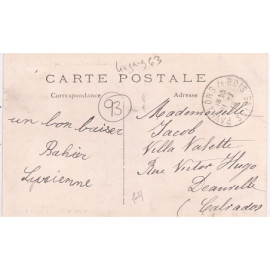 CARTE POSTALE
Correspondance
93
un bon baiser
Bahier
Lucienne
Mademoiselle
Jacob
Villa Valette
Rue Victor Hugo
Deauville
(Calvados)